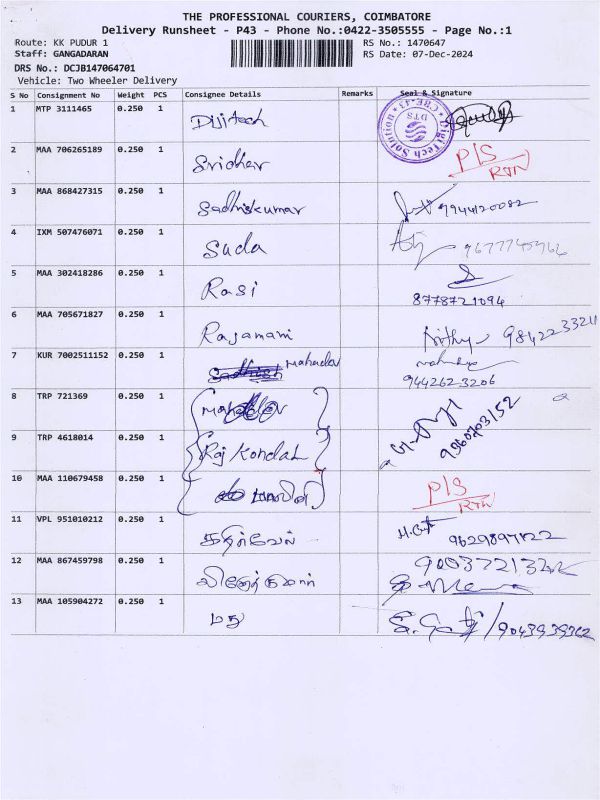 THE PROFESSIONAL COURIERS, COIMBATORE
Delivery Runsheet - P43 - Phone No.:0422-3505555 - Page No.:1
Route: KK PUDUR 1 RS No.: 1470647
Staff: GANGADARAN RS Date: 07-Dec-2024
DRS No.: DCJB147064701
Vehicle: Two Wheeler Delivery
S No Consignment No Weight PCS Consignee Details Remarks Seal & Signature
1 MTP 3111465 0.250 1 Dijitech
2 MAA 706265189 0.250 1 Sridhar P/S RTN
3 MAA 868427315 0.250 1 Sadhiskumar 9944120082
4 IXM 507476071 0.250 1 Suda
5 MAA 302418286 0.250 1 Rasi 8778721094
6 MAA 705671827 0.250 1 Rajamani 9842233211
7 KUR 7002511152 0.250 1 Mahadev 9442623206
8 TRP 721369 0.250 1
9 TRP 4618014 0.250 1 Raj Kondal
10 MAA 110679458 0.250 1 P/S RTN
11 VPL 951010212 0.250 1 கதிர்வேல் 9629897122
12 MAA 867459798 0.250 1 வினோத்குமார்
13 MAA 105904272 0.250 1 மது